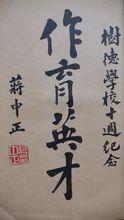 樹德學校十週紀念
作育英才
蔣中正